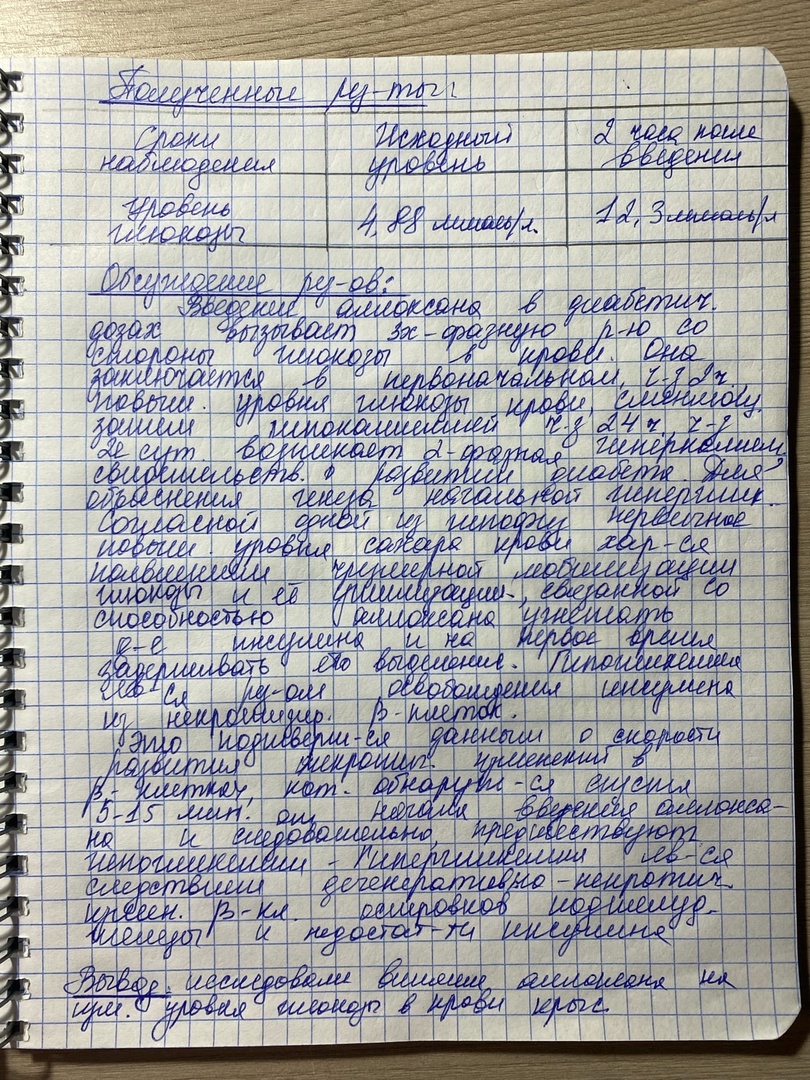 Полученные рез-ты:
Сроки наблюдения
Исходный уровень
2 часа после введения
уровень глюкозы
4,88 ммоль/л.
12,3 ммоль/л
Обсуждение рез-ов:
Введение аллоксана в диабетич.
дозах вызывает 3х-фазную р-ю со
стороны глюкозы в крови. Она
заключается в первоначальном, ч-з 2 ч.
повыш. уровня глюкозы крови,
затем ч-з 24 ч, ч-з
2е сут. возникает 2-фазная
свидетельств. о развитии диабета. Для
объяснения генеза начальной гипергликем.
Согласной одной из первичное
повыш. уровня сахара крови хар-ся
чрезмерной мобилизации
глюкозы и её связанной со
способностью аллоксана угнетать
инсулина и на первое время
задерживать его выделение. Гипогликемия
яв-ся рез-ом освобождения инсулина
из β-клеток.
Это подтвержд-ся данными о скорости
развития некротич. изменений в
β-клетках, кот. обнаруж-ся спустя
5-15 мин. от начала введения аллокса-
на и следовательно предшествуют
гипогликемии - Гипергликемия яв-ся
следствием дегенеративно-некротич.
измен. β-кл. островков поджелуд.
железы и недостат-ти инсулина
Вывод: исследовали влияние аллоксана на
изм. уровня глюкозы в крови крыс.